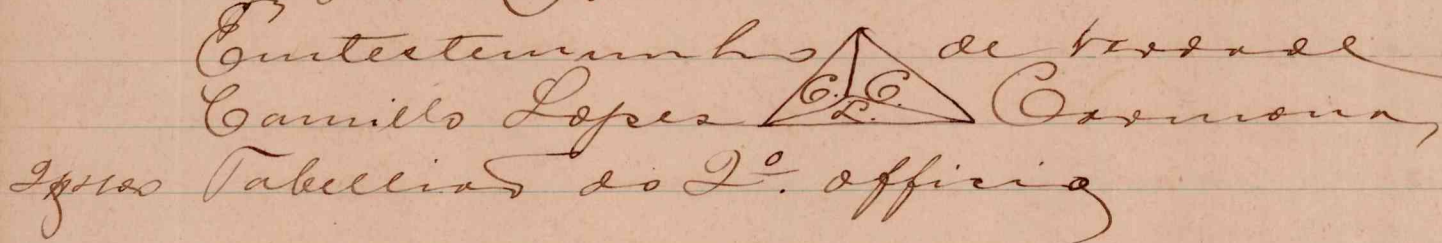 Em testemunho de verdade
Camillo Lopes C. C. L. Carmona,
Tabellião do 2º. officio